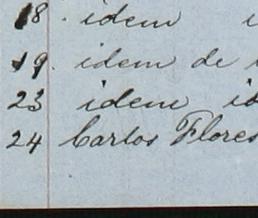 18. idem
19. idem de
23 idem
24 Carlos Flores